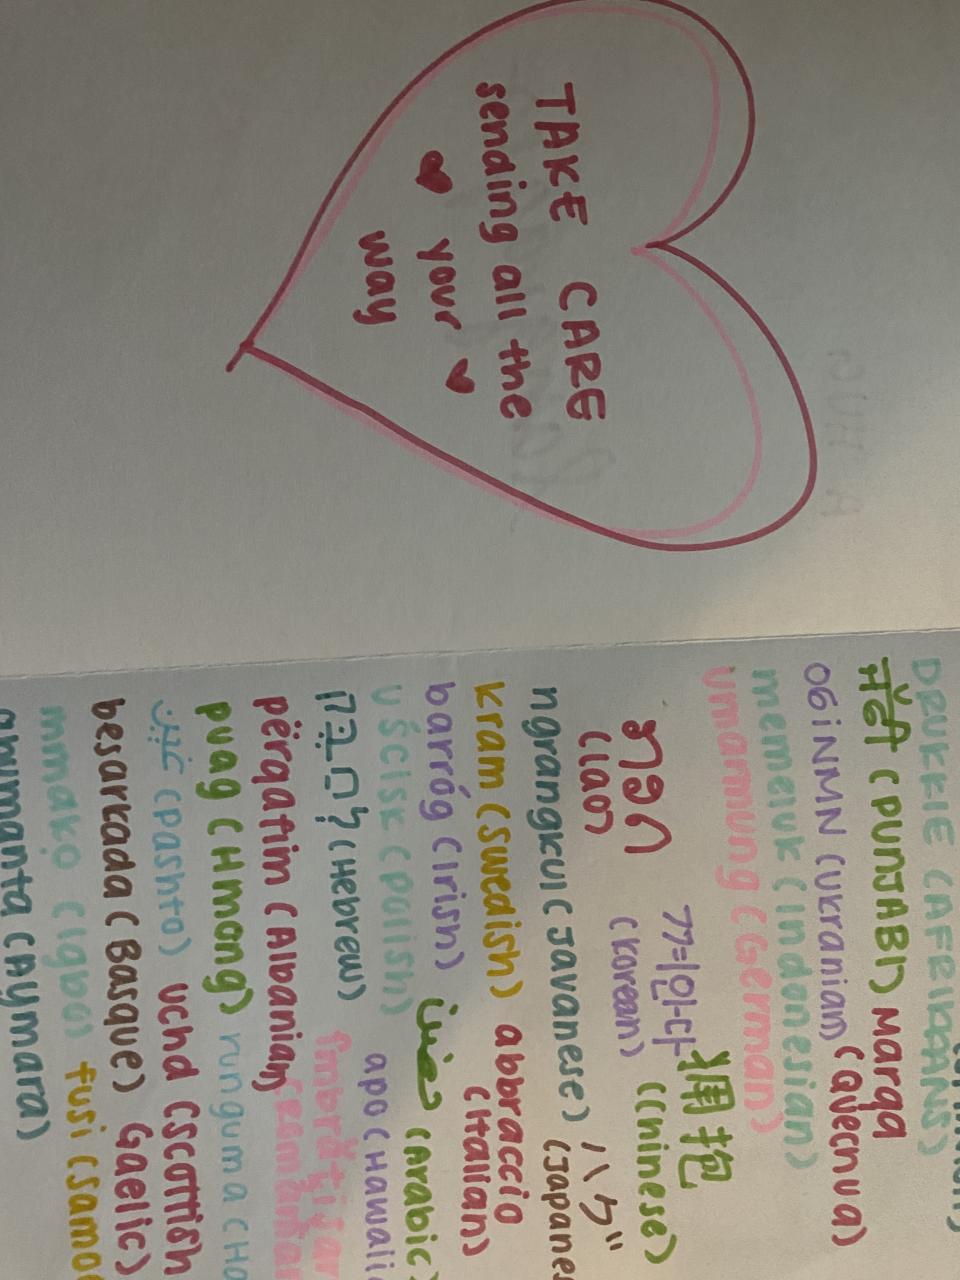 TAKE CARE
sending all the
♥ your ♥
way
DRUKKIE (AFRIKAANS)
ਜੱਫੀ (PUNJABI) Marqa
(Quechua)
ОБІЙМИ (Ukranian)
memeluk (indonesian)
umarmung (German)
ກອດ
(lao)
껴안다
(korean)
拥抱
(Chinese)
ngrangkul (Javanese) ハグ
kram (Swedish) abbraccio
(Italian)
barróg (Irish)
uścisk (polish)
(Arabic)
(Hebrew) apo
përqafim (Albanian)
puag (Hmong) runguma
(pashto) uchd (Scottish
Gaelic)
besarkada (Basque)
mmakọ (Igbo) fusi
(Aymara)